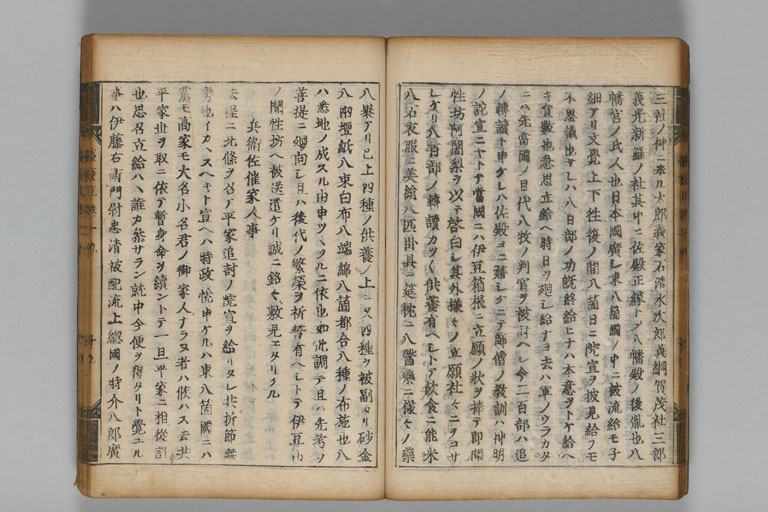 三社ノ神ニ奉ル太郎義家石清水次郎義綱賀茂社三郎
義光新羅ノ社其中ニ佐殿正縁トシテ八幡殿ノ後胤也八
幡宮ノ氏人也日本國廣シ東八箇國ノ中ニ被流給モ子
細アリ文覺上下往復ノ間八箇日ニ院宣ヲ披見給フモ
不思議也サレハ八日部ノ功既給ヒナハ本意ヲトケ給ヘ
キ員數也急思立給ヘ時日ヲ廻シ給ナヨ去ハ軍ノウラカタ
ニハ先當國ノ目代八牧ノ判官ヲ被討ヘシ今二百部ハ追
ノ轉讀ト申ケレハ佐殿ヨニ
ノ院宣ニヤトテ當國ニハ伊豆箱根ニ立願ノ狀ヲ捧テ即聞
性坊阿闍梨ヲ以テ啓白シ其外樣々ノ立願社々ニヲコサ
レケリ八百部ノ轉讀カツ〱供養有ヘシトテ飲食ニ能米
八石衣服ニ美絹八匹臥具ニ莚枕ニ八醫藥ニ樣々ノ藥
八果アリ已上四種ノ供養ノ上ニ又四種ヲ被副タリ砂金
八兩檀紙八束白布八端綿八箇都合八種ノ布施也八
ハ悉地ノ成スル由申ツタフルニ依也如此調テ且ハ先考ノ
菩提ニ廻向シ且ハ後代ノ繁榮ヲ祈誓有ヘシトテ伊豆山
ノ聞性坊ヘ被送遣ケリ誠ニ銘々敷見エタリケル
兵衛佐催家人事
北條ヲ召テ平家追討ノ院宣ヲ給リタレ共折節無
勢也イカヽスヘキト宣ヘハ時政悅申ケルハ東八箇國ニハ
黨モ高家モ大名小名君ノ御家人ナラヌ者ハ候ハス去共
平家世ヲ取ニ依テ暫身命ヲ續ントテ一旦平家ニ相從計
也思召立給ハヽ誰カ參サラン就中今便ヲ得タリト覺ユル
事ハ伊藤右衛門尉忠清被配流上總國ノ時介八郎廣